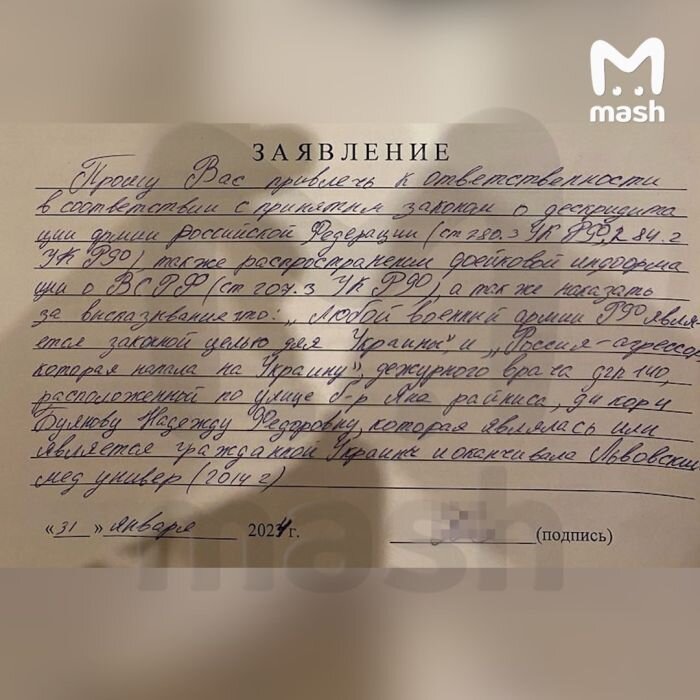 mash
ЗАЯВЛЕНИЕ
Прошу Вас привлечь к ответственности
в соответствии с принятым законом о дескридита
ции армии Российской Федерации (ст 280.3 УК РФ, 284.2
УК РФ), также распространении фейковой информа
ции о ВСРФ (ст 207.3 УК РФ), а также наказать
за высказывание что: „Любой военный армии РФ явля-
ется законой целью для Украины", и „Россия-агрессор
которая напала на Украину", дежурного врача дгп 140,
расположенный по улице б-р Яна райниса, д
Буянову Надежду Федоровну, которая являлась или
является гражданкой Украины и оканчивала Львовский
мед универ (2014 г)
« 31 » января 2024 г. (подпись)
mash